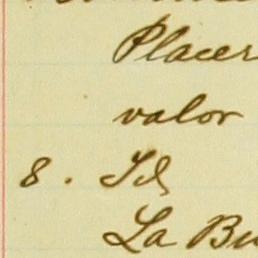 Placer
valor
8. Id
La Bu